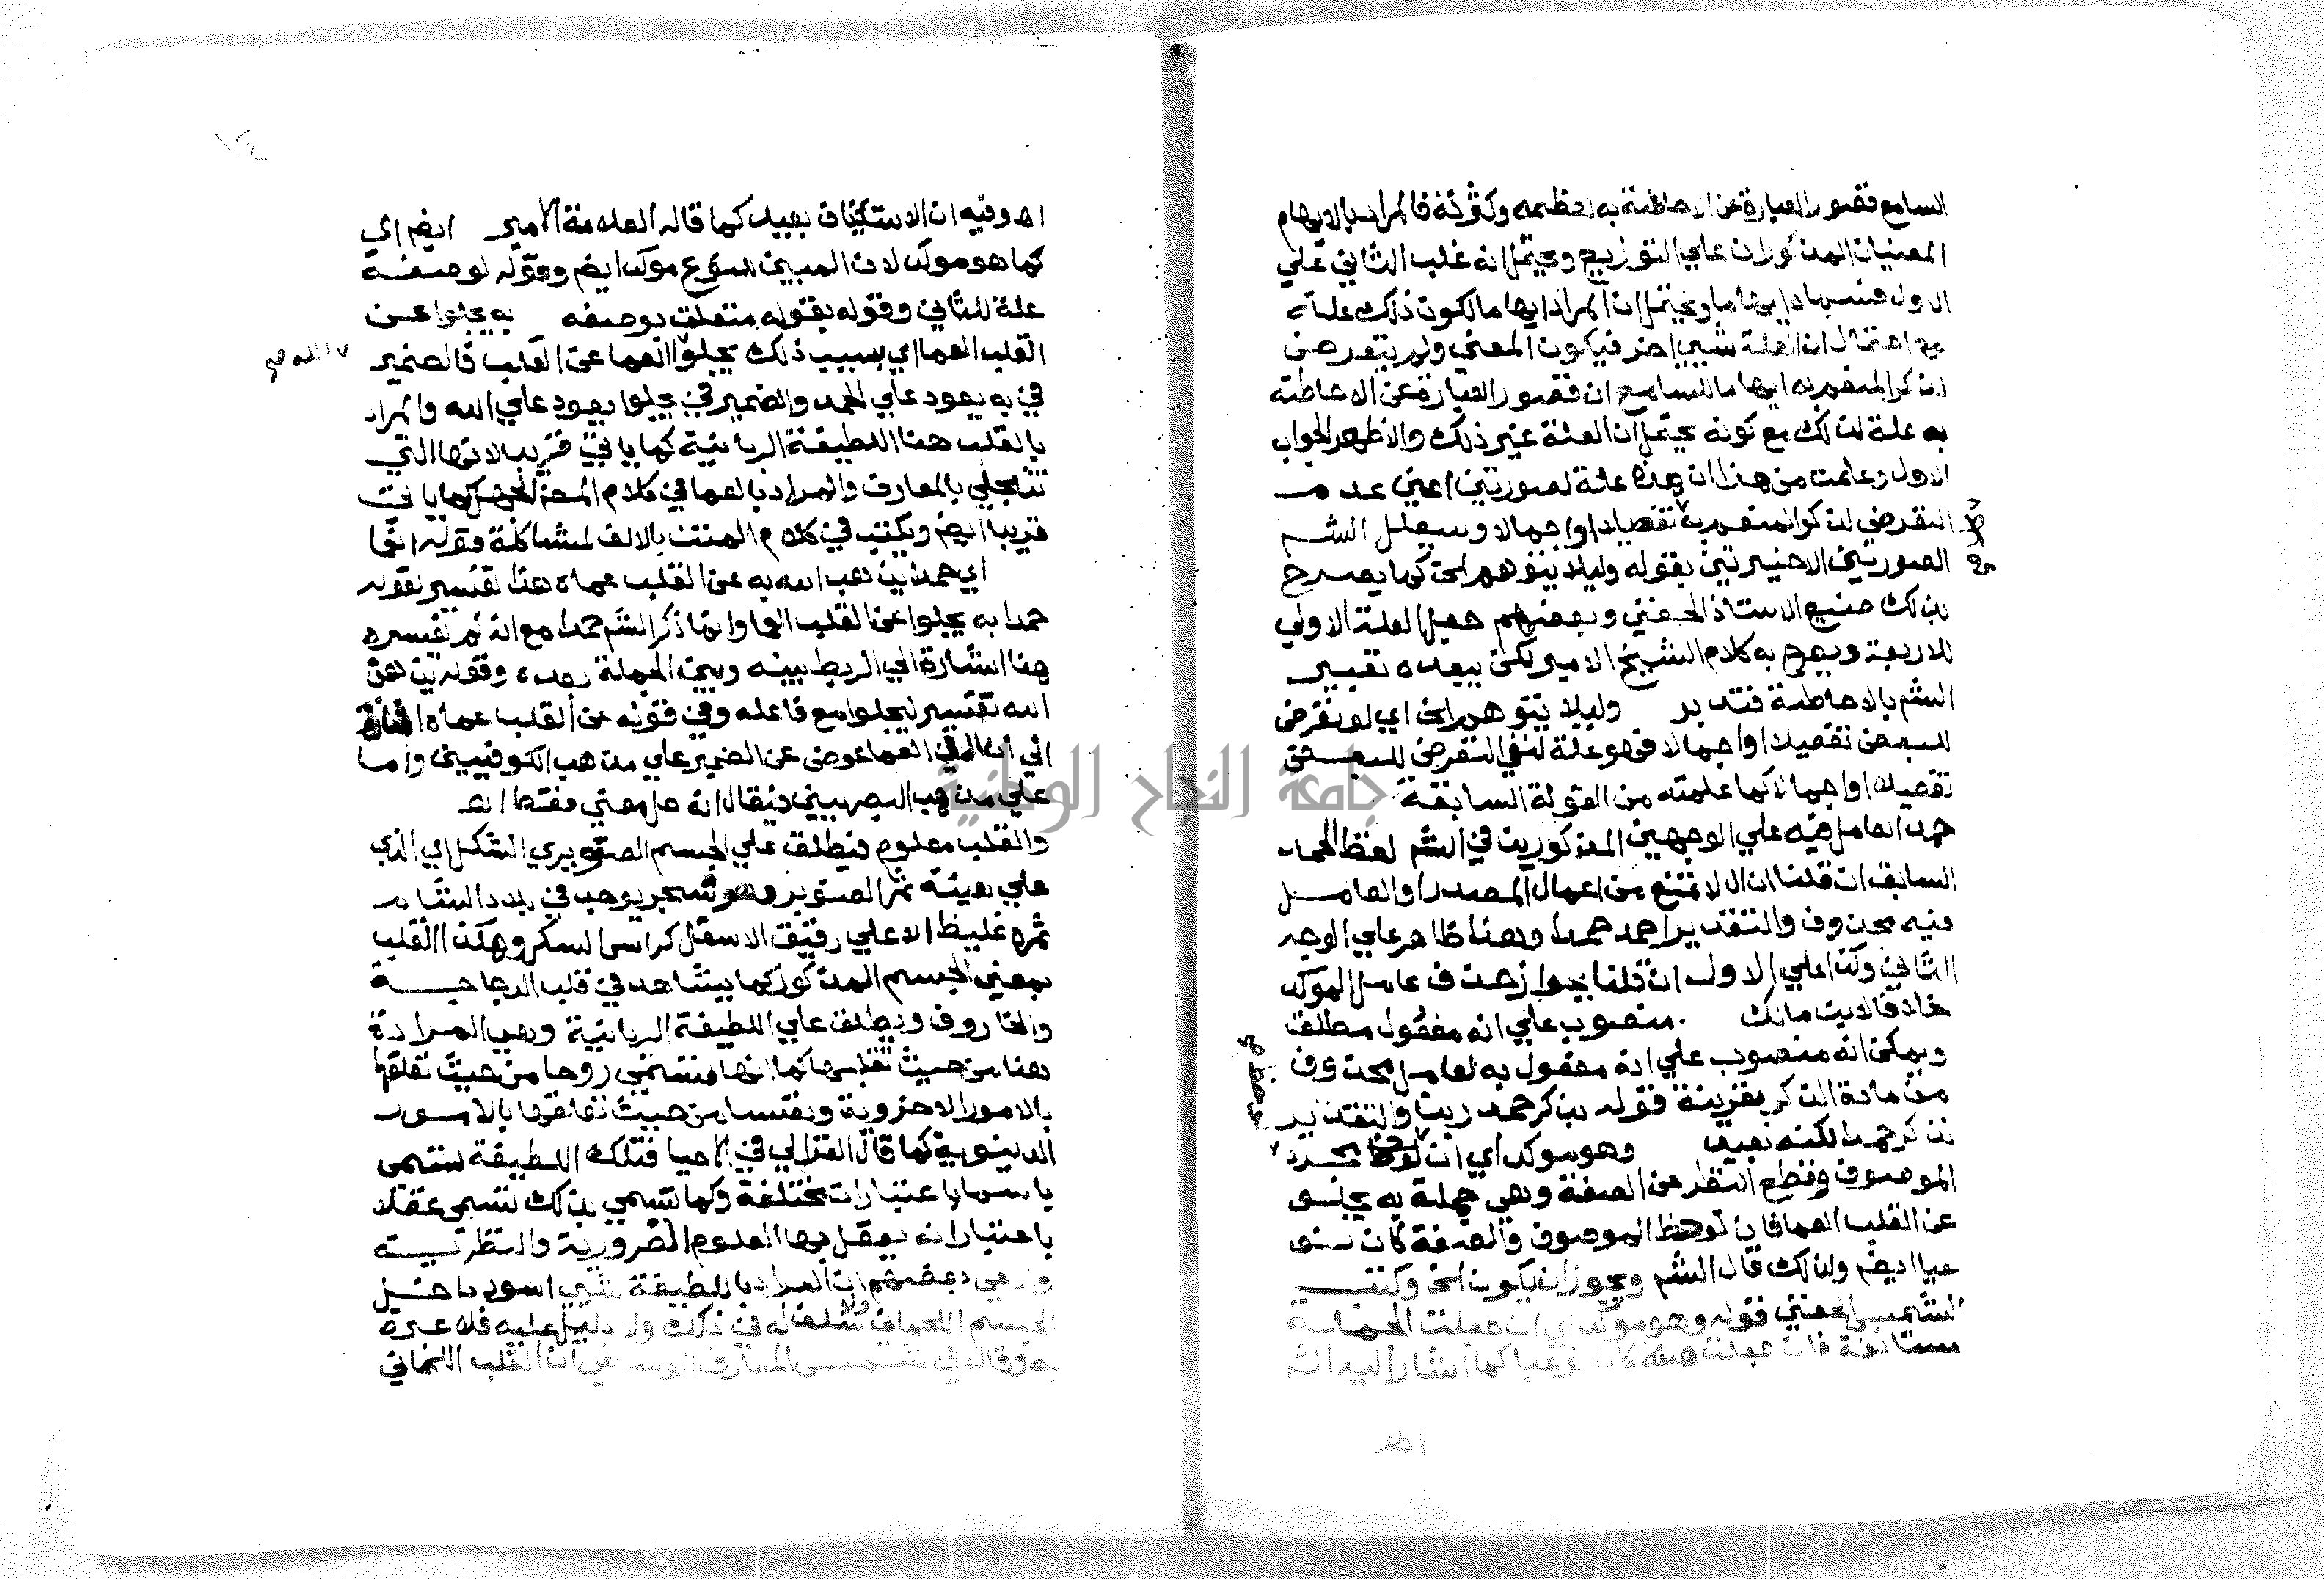 السامع فقصور العبارة عن الاحاطة به لعظمه وكثرته فالمراد بالابهام
المعنيان المذكوران علي التوزيع ويحتمل انه غلب الثاني علي
الاول فسماه ابهاما ويحتمل ان المراد ايهاما لكون ذلك علته
مع احتمال ان العلة شيي اخر فيكون المعني ولم يتعرض
لذكر المنعم به ايهاما للسامع ان قصور العبارة عن الاحاطة
به علة لذلك مع كونه يحتمل ان العلة غير ذلك والاظهر الجواب
الاول وعلمت من هذا ان هذه علة لصورتين اعني عدم
التعرض لذكر المنعم به تفصيلا او اجمالا وسيعلل الشم
الصورتين الاخيرتين بقوله وليلا يتوهم الخ كما يصرح
بذلك صنيع الاستاذ الحفني وبعضهم جعل العلة الاولي
للاربعة ويصرح به كلام الشيخ الامير لكن يبعده تعبير
الشم بالاحاطة فتدبر وليلا يتوهم الخ اي لو تعرض
للبعض تفصيلا او اجمالا فهو علة لنفي التعرض للبعض
تفصيلا او اجمالا كما علمته من القولة السابقة
حمدا العامل فيه علي الوجهين المذكورين في الشم لفظ الحمد
السابق ان قلنا ان ال لا تمنع من اعمال المصدر او العامل
فيه محذوف والتقدير احمد حمدا وهذا ظاهر علي الوجه
الثاني وكذا علي الاول ان قلنا بجواز حذف عامل الموكد
خلافا لابن مالك منصوب علي انه مفعول مطلق
ويمكن انه منصوب علي انه مفعول به لعامل محذوف
من مادة الذكر بقرينة قوله بذكر حمد ربنا والتقدير
نذكر حمدا لكنه بعيد وهو موكد اي ان لوحظ مجرد
الموصوف وقطع النظر عن الصفة وهي جملة به يجلو
عن القلب العما فان لوحظ الموصوف والصفة كان نو
عيا ايضم ولذلك قال الشم ويجوز ان يكون الخ وكتب
الشمس الحفني قوله وهو موكد اي ان جعلت الجملة
مستانفة فان جعلت صفة كان نوعيا كما اشار اليه الش
اهـ
اهـ وفيه ان الاستئناف بعيد كما قاله العلامة الامير ايضم اي
كما هو موكد لان المبين للنوع موكد ايضم وقوله لوصفه
علة للثاني وقوله بقوله متعلق بوصفه به يجلوا عن
القلب العما اي بسبب ذلك يجلوا العما عن القلب فالضمير
الله صح
في به يعود علي الحمد والضمير في يجلوا يعود علي الله والمراد
بالقلب هنا اللطيفة الربانية كما ياتي قريبا لانها التي
تنجلي بالمعارف والمراد بالعما في كلام المصنف كما ياتي
قريبا ايضم ويكتب في كلام المتن بالالف لمشاكلة قوله انما
اي حمدا يذهب الله به عن القلب عماه هذا تفسير لقوله
حمدا به يجلوا عن القلب العما وانما ذكر الشم حمدا مع انه لم يفسره
هنا اشارة الي الربط بينه وبين الجملة بعده وقوله يذهب
الله تفسير ليجلوا مع فاعله وفي قوله عن القلب عماه اشارة
الي ان ال في العما عوض عن الضمير علي مذهب الكوفيين واما
علي مذهب البصريين فيقال انه حل معني فقط اهـ
والقلب معلوم فيطلق علي الجسم الصنوبري الشكل اي الذي
علي هيئة ثمر الصنوبر وهو شجر يوجد في بلاد الشام
ثمره غليظ الاعلي رقيق الاسفل كراس السكر وهكذا القلب
بمعني الجسم المذكور كما يشاهد في قلب الدجاجة
والخاروف ويطلق علي اللطيفة الربانية وهي المرادة
هنا من حيث تقلبها كما انها تسمي روحا من حيث تعلقها
بالامور الاخروية ونفسا من حيث تعلقها بالامور
الدنيوية كما قال الغزالي في الاحيا فتلك اللطيفة تسمي
باسما باعتبارات مختلفة وكما تسمي بذلك تسمي عقلا
باعتبار انه يعقل بها العلوم الضرورية والنظرية
وزعم بعضهم ان المراد باللطيفة شيي اسود داخل
القلب الثاني